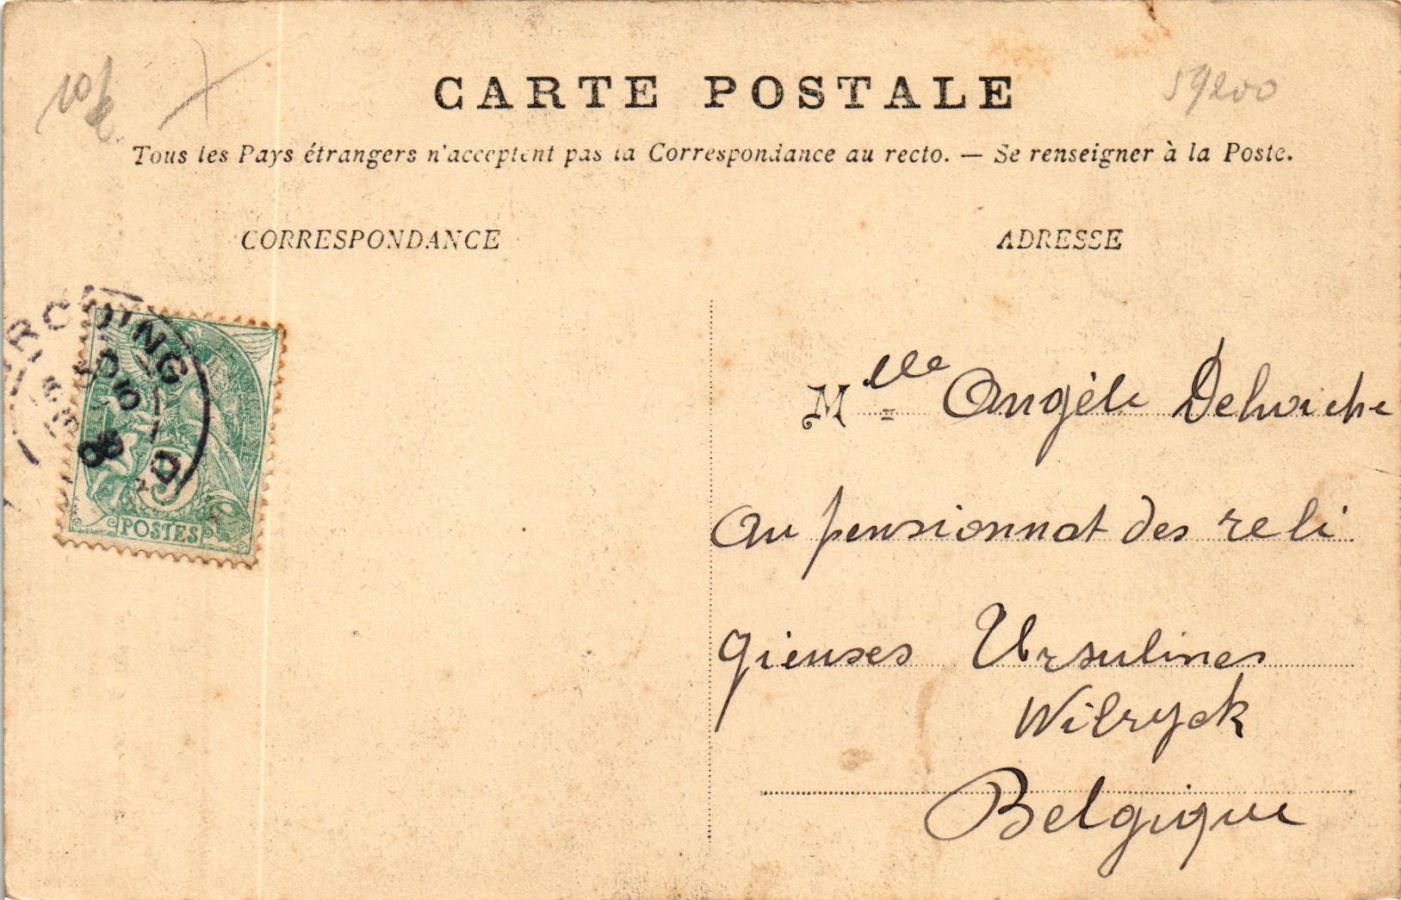 CARTE POSTALE
59200
Tous les Pays étrangers n'acceptent pas la Correspondance au recto. — Se renseigner à la Poste.
CORRESPONDANCE
ADRESSE
POSTES
5
Mlle Angèle Delviche
au pensionnat des reli
gieuses Ursulines
Wilryck
Belgique